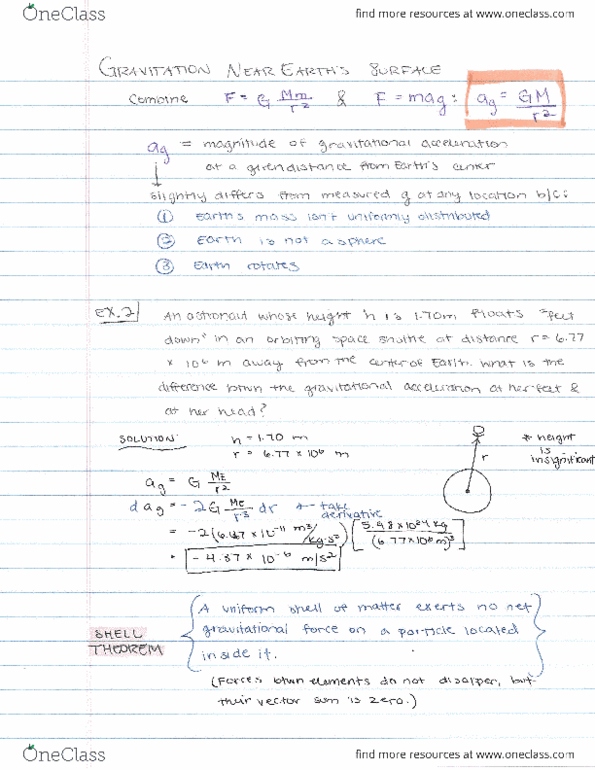 OneClass
find more resources at www.oneclass.com
GRAVITATION NEAR EARTH'S SURFACE
Combine F = G Mm/r² & F = mag : ag = GM/r²
ag = magnitude of gravitational acceleration
at a given distance from Earth's center
slightly differs from measured g at any location b/c:
① Earth's mass isn't uniformly distributed
② Earth is not a sphere
③ Earth rotates
ex. 2 An astronaut whose height h is 1.70m floats "feet
down" in an orbiting space shuttle at distance r = 6.77
× 10⁶ m away from the center of Earth. What is the
difference btwn the gravitational acceleration at her feet &
at her head?
SOLUTION: h = 1.70 m
r = 6.77 × 10⁶ m
* height
is
insignificant
r
ag = G ME/r²
dag = -2G ME/r³ dr ← take
derivative
= -2(6.67 × 10⁻¹¹ m³/kg·s²) [5.98 × 10²⁴ kg/(6.77 × 10⁶ m)³]
= -4.37 × 10⁻⁶ m/s²
SHELL
THEOREM
A uniform shell of matter exerts no net
gravitational force on a particle located
inside it.
(Forces btwn elements do not disapper, but
their vector sum is zero.)
OneClass
find more resources at www.oneclass.com